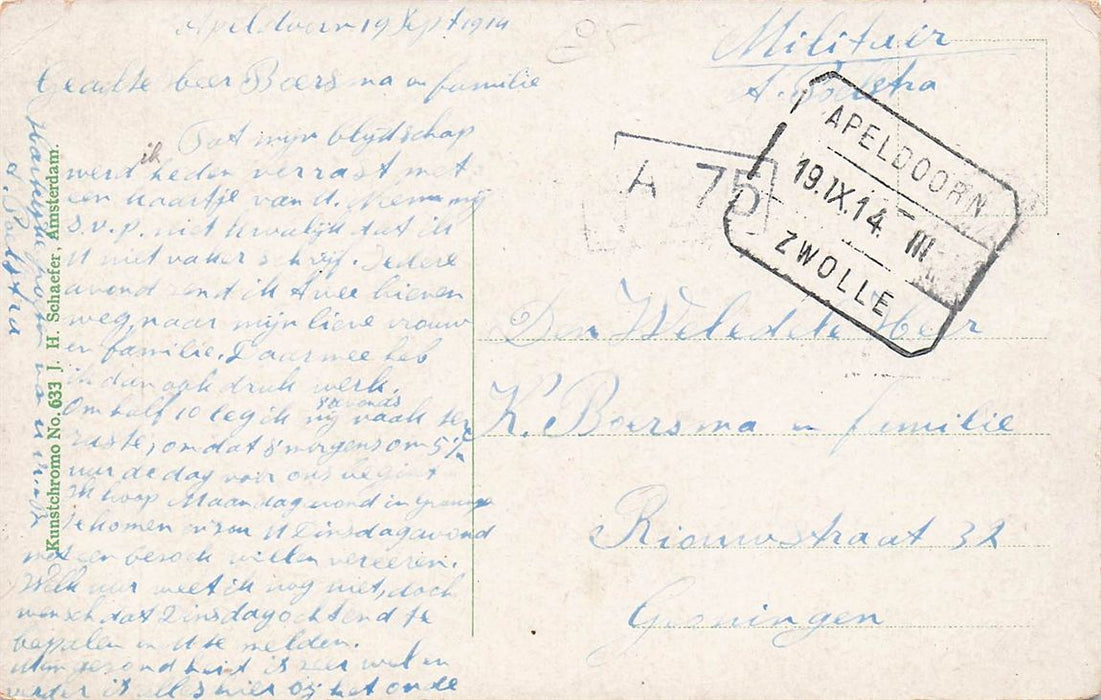 Apeldoorn 19 Sept 1914
Geachte heer Boersma en familie
Tot mijn blydschap
werd ik heden verrast met
een kaartje van U. Neem mij
s.v.p. niet kwalijk dat ik
U niet vaker schrijf. Iedere
avond zend ik twee brieven
weg, naar mijn lieve vrouw
en familie. Daarmee heb
ik dan ook druk werk.
Om half 10 leg ik mij 's avonds vaak ter
ruste, omdat 's morgens om 5 1/2
uur de dag voor ons begint
Ik hoop Maandagavond in Groningen
te komen en zou U Dinsdagavond
met een bezoek willen vereeren.
Welk uur weet ik nog niet, doch
wensch dat Dinsdagochtend te
bepalen en U te melden.
Mijn gezondheid is zeer wel en
verder is alles hier bij het oude
Hartelijk
A. Poelstra
Kunstchromo No. 633 J. H. Schaefer, Amsterdam.
85
Militair
A. Poelstra
A 75
APELDOORN
19.IX.14. III
ZWOLLE
Den Weledele heer
K. Boersma en Familie
Riouwstraat 32
Groningen